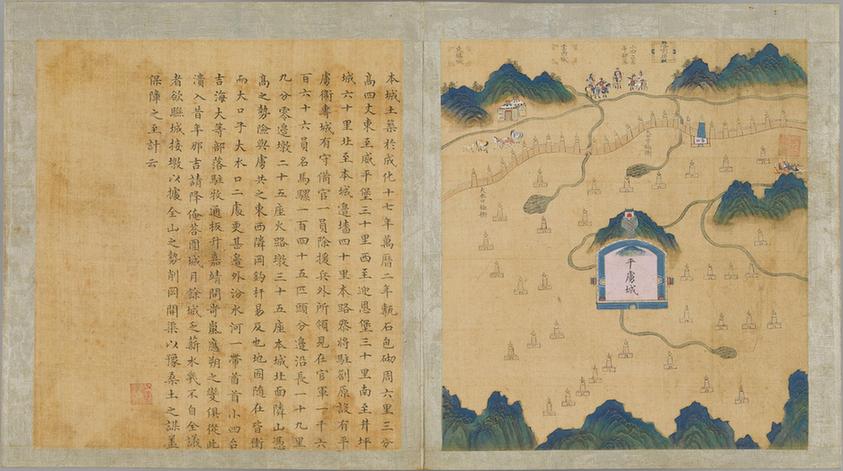 本城土築於成化十七年萬曆二年甎石包砌周六里三分
高四丈東至威平堡三十里西至迎恩堡三十里南至井坪
城六十里北至本城邊墻四十里本路叅將駐劄原設有平
虜衞專城有守備官一員除援兵外所領見在官軍一千六
百六十六員名馬騾一百四十五匹頭分邊沿長一十九里
九分零邊墩二十五座火路墩三十五座本城北面隣山憑
高之勢險與虜共之東西隣岡鈎杆易及也地隨在皆衝
而大口子大水口二處更甚邊外汾水河一帶酋首小四台
吉海大等部落駐牧通板升嘉靖間岢嵐應朔之變俱從此
潰入昔年那吉請降俺答圍城月餘城乏薪水幾不自全議
者欲聯城接墩以據全山之勢削岡開渠以豫桑土之謀蓋
保障之至計云
平虜城